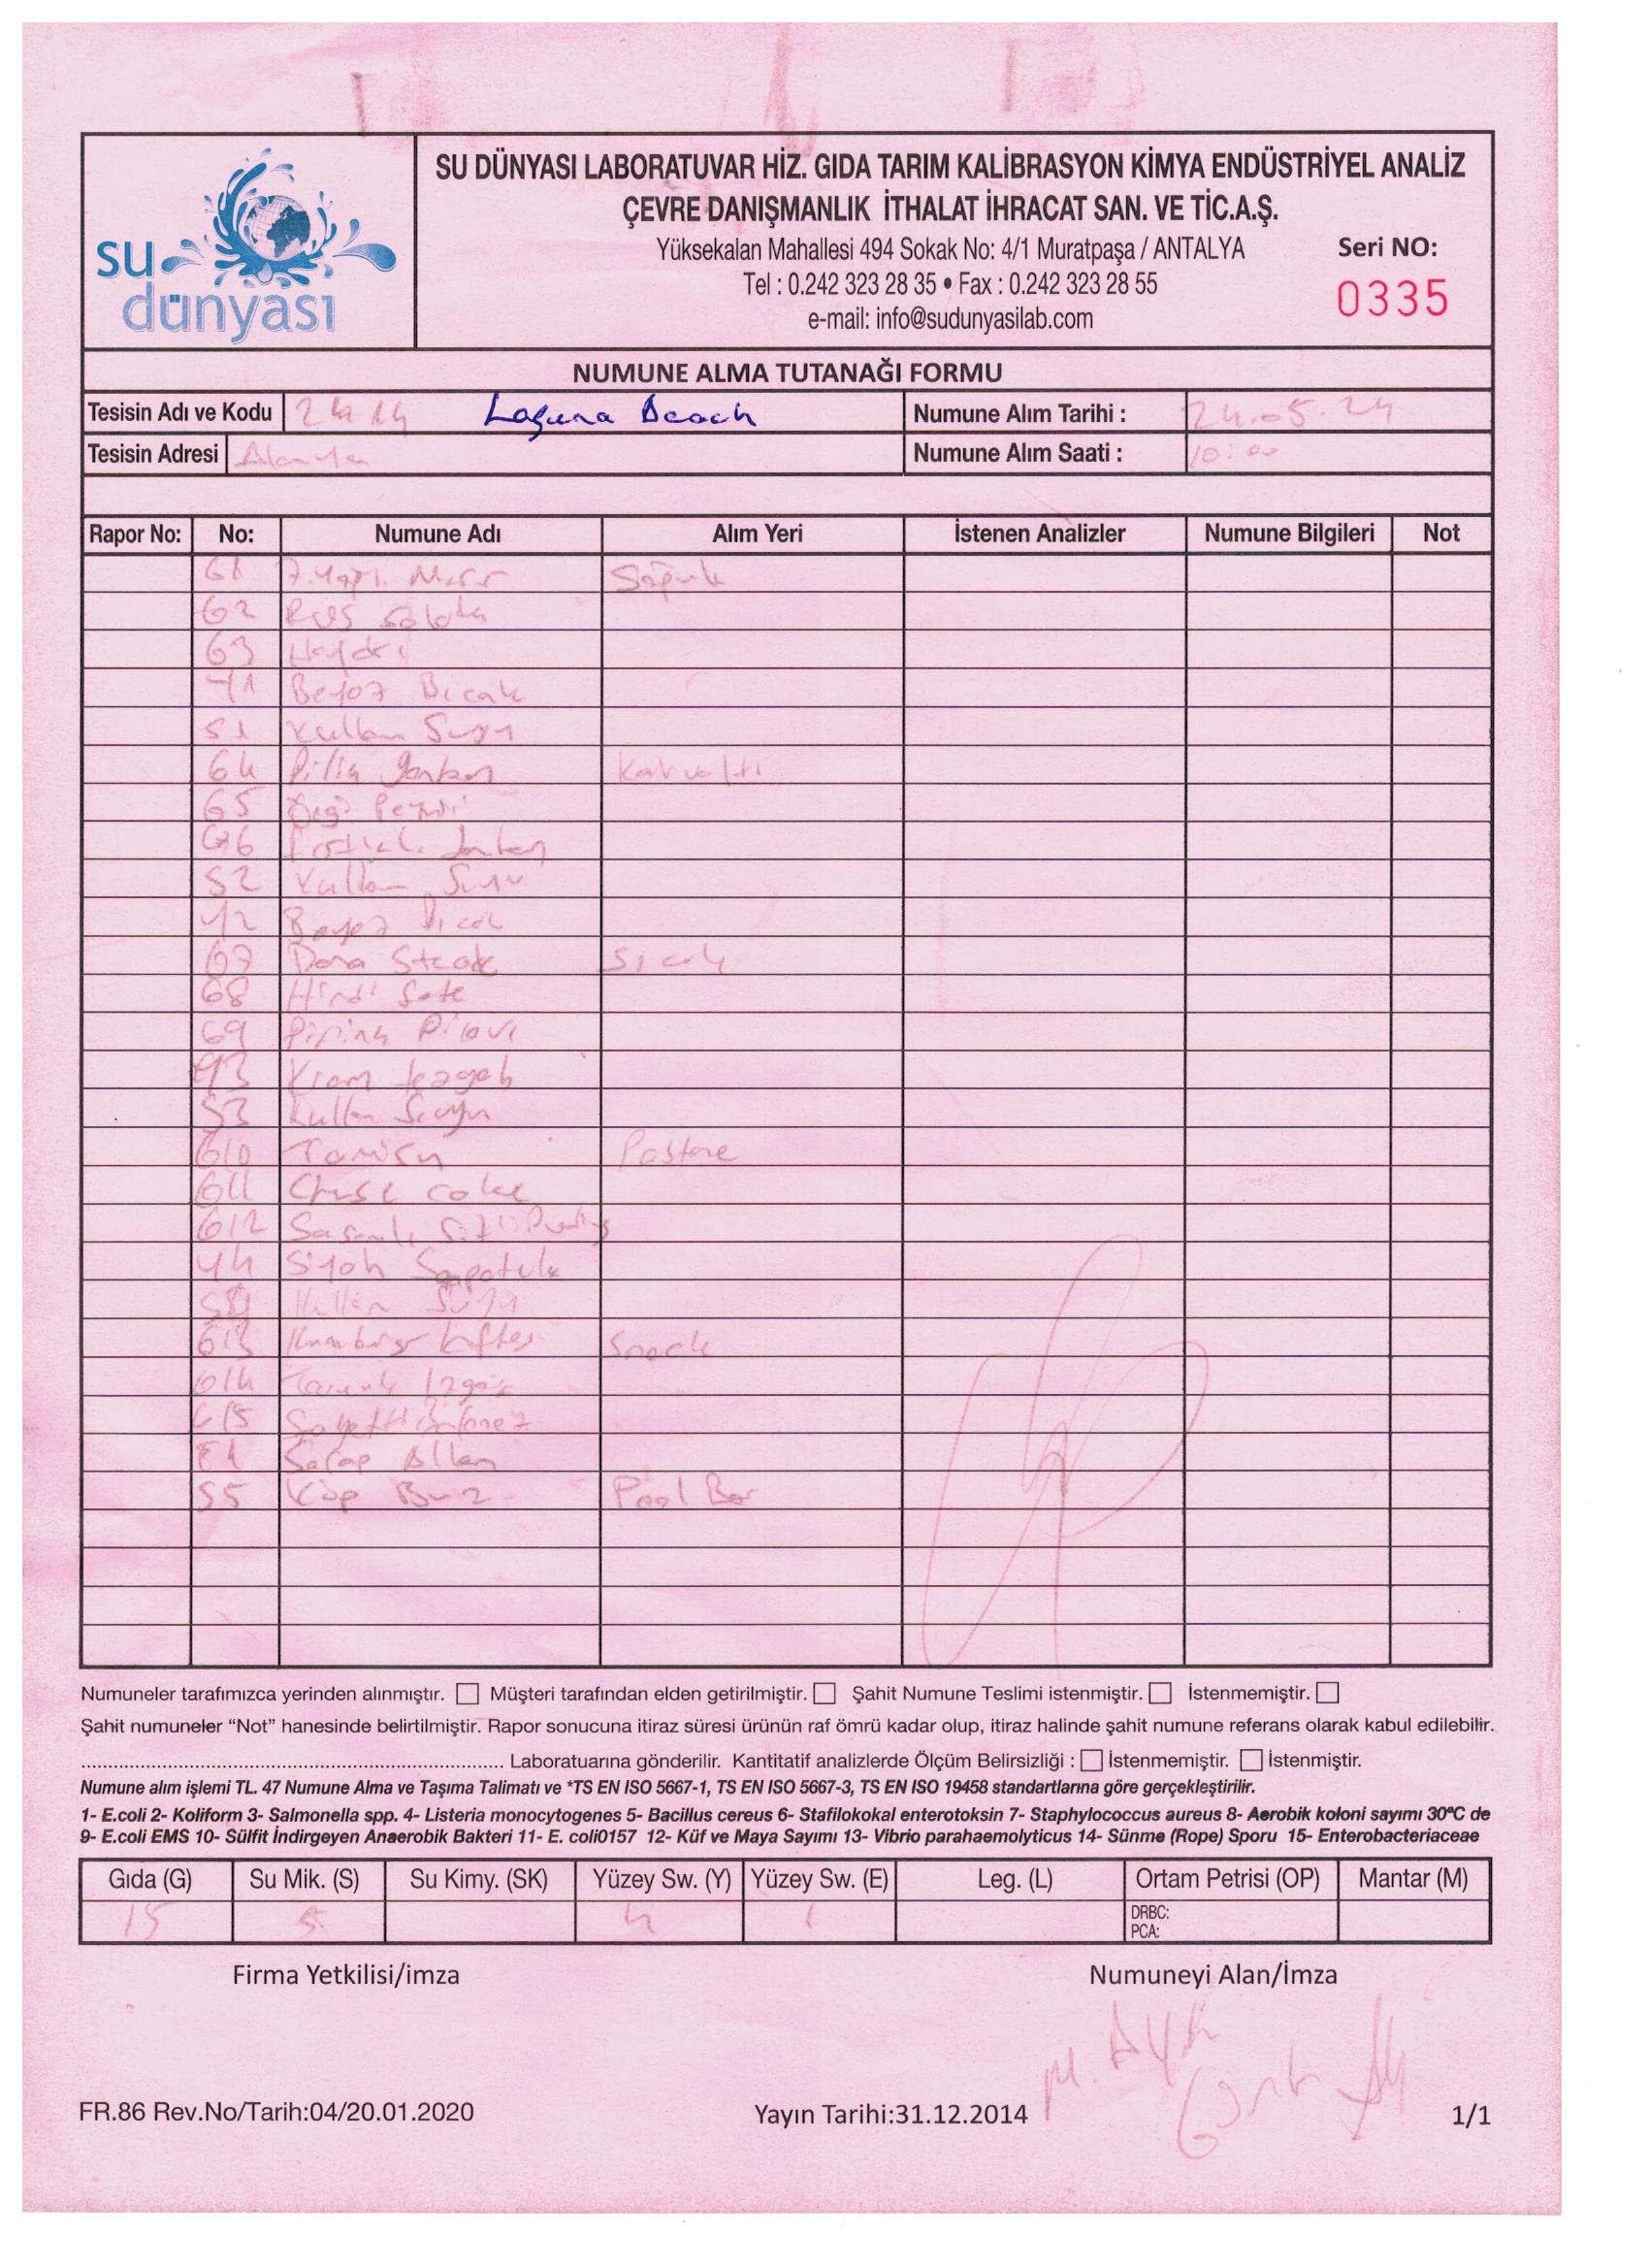 su
dünyası
SU DÜNYASI LABORATUVAR HİZ. GIDA TARIM KALİBRASYON KİMYA ENDÜSTRİYEL ANALİZ
ÇEVRE DANIŞMANLIK İTHALAT İHRACAT SAN. VE TİC.A.Ş.
Yüksekalan Mahallesi 494 Sokak No: 4/1 Muratpaşa / ANTALYA
Tel : 0.242 323 28 35 • Fax : 0.242 323 28 55
e-mail: info@sudunyasilab.com
Seri NO:
0335
NUMUNE ALMA TUTANAĞI FORMU
Tesisin Adı ve Kodu Laguna Beach Numune Alım Tarihi : 24.05.24
Tesisin Adresi Alanya Numune Alım Saati : 10:00
Rapor No: No: Numune Adı Alım Yeri İstenen Analizler Numune Bilgileri Not
G1 Soğuk
G2 Rus Salata
G3 Haydari
Y1 Beyaz Bıcak
S1 Kullan Suyu
G4 Piliç Jambon Kahvaltı
G5
G6 Jambon
S2 Kullan Suyu
Y2 Beyaz Bıcak
G7 Dana Steak Sıcak
G8 Hindi Sote
G9 Pirinç Pilavı
Y3 Krom tezgah
S3 Kullan Suyu
G10 Pastane
G11 cake
G12
Y4 Siyah Sapatula
S4 Kullan Suyu
G13 Hamburger Köftesi Snack
G14 Tavuk Izgara
G15
E1
S5 Küp Buz Pool Bar
Numuneler tarafımızca yerinden alınmıştır. Müşteri tarafından elden getirilmiştir. Şahit Numune Teslimi istenmiştir. İstenmemiştir.
Şahit numuneler “Not” hanesinde belirtilmiştir. Rapor sonucuna itiraz süresi ürünün raf ömrü kadar olup, itiraz halinde şahit numune referans olarak kabul edilebilir.
........................................................................ Laboratuarına gönderilir. Kantitatif analizlerde Ölçüm Belirsizliği : İstenmemiştir. İstenmiştir.
Numune alım işlemi TL. 47 Numune Alma ve Taşıma Talimatı ve *TS EN ISO 5667-1, TS EN ISO 5667-3, TS EN ISO 19458 standartlarına göre gerçekleştirilir.
1- E.coli 2- Koliform 3- Salmonella spp. 4- Listeria monocytogenes 5- Bacillus cereus 6- Stafilokokal enterotoksin 7- Staphylococcus aureus 8- Aerobik koloni sayımı 30ºC de
9- E.coli EMS 10- Sülfit İndirgeyen Anaerobik Bakteri 11- E. coli0157 12- Küf ve Maya Sayımı 13- Vibrio parahaemolyticus 14- Sünme (Rope) Sporu 15- Enterobacteriaceae
Gıda (G) Su Mik. (S) Su Kimy. (SK) Yüzey Sw. (Y) Yüzey Sw. (E) Leg. (L) Ortam Petrisi (OP) Mantar (M)
15 5 4 1 DRBC:
PCA:
Firma Yetkilisi/imza Numuneyi Alan/İmza
FR.86 Rev.No/Tarih:04/20.01.2020 Yayın Tarihi:31.12.2014 1/1